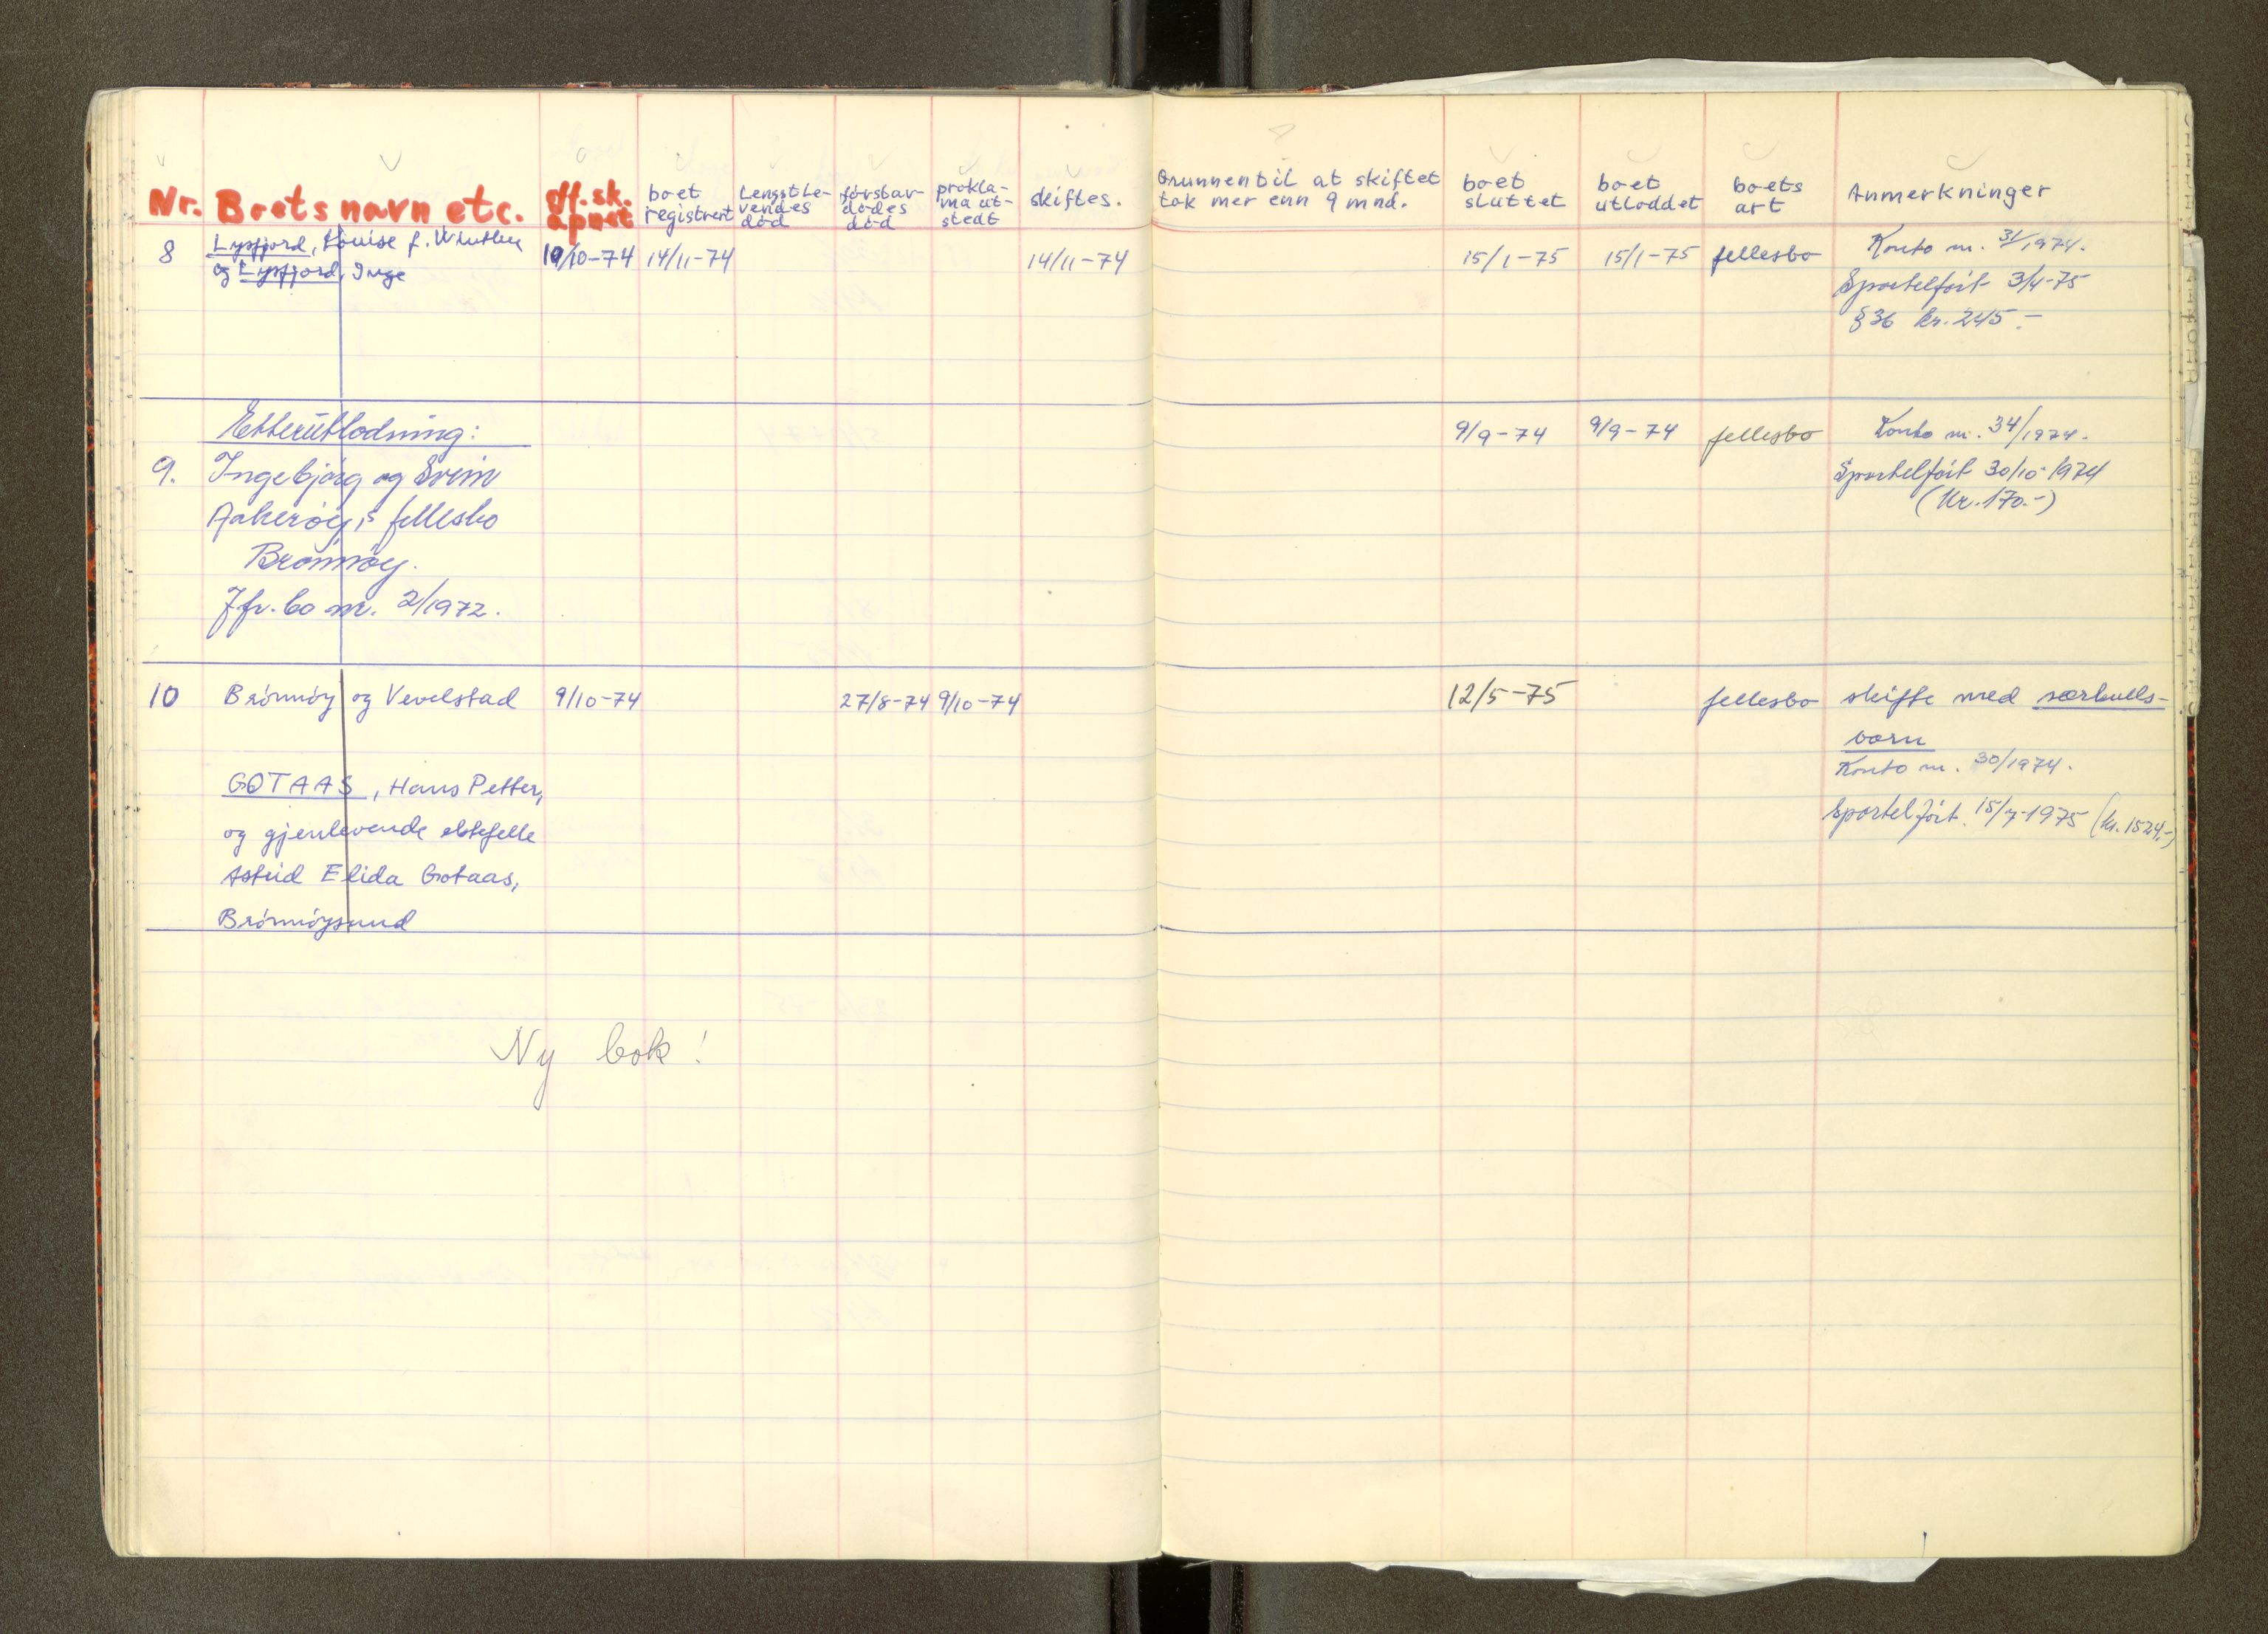 Nr. Boets navn etc. off.sk. åpnet boet registrert Lengstlevendes død førstavdødes død proklama utstedt skiftes. Grunnen til at skiftet tok mer enn 9 mnd. boet sluttet boet utloddet boets art Anmerkninger
8 Lysfjord, Louise f. 10/10-74 14/11-74 14/11-74 15/1-75 15/1-75 fellesbo Konto nr. 31/1974.
og Lysfjord, Inge Sportelført 3/4-75
§ 36 kr. 245.-
Etterutlodning: 9/9-74 9/9-74 fellesbo Konto nr. 34/1974.
9. Ingebjørg og Svein Sportelført 30/10-1974
Aakerøy,s fellesbo (Kr. 170.-)
Brønnøy.
Jfr. bo nr. 2/1972.
10 Brønnøy og Vevelstad 9/10-74 27/8-74 9/10-74 12/5-75 fellesbo skifte med særkulls-
barn
Konto nr. 30/1974.
GOTAAS, Hans Petter,
Sportelført. 15/7-1975 (kr. 1524,-)
og gjenlevende ektefelle
Astrid Elida Gotaas,
Brønnøysund
Ny bok!